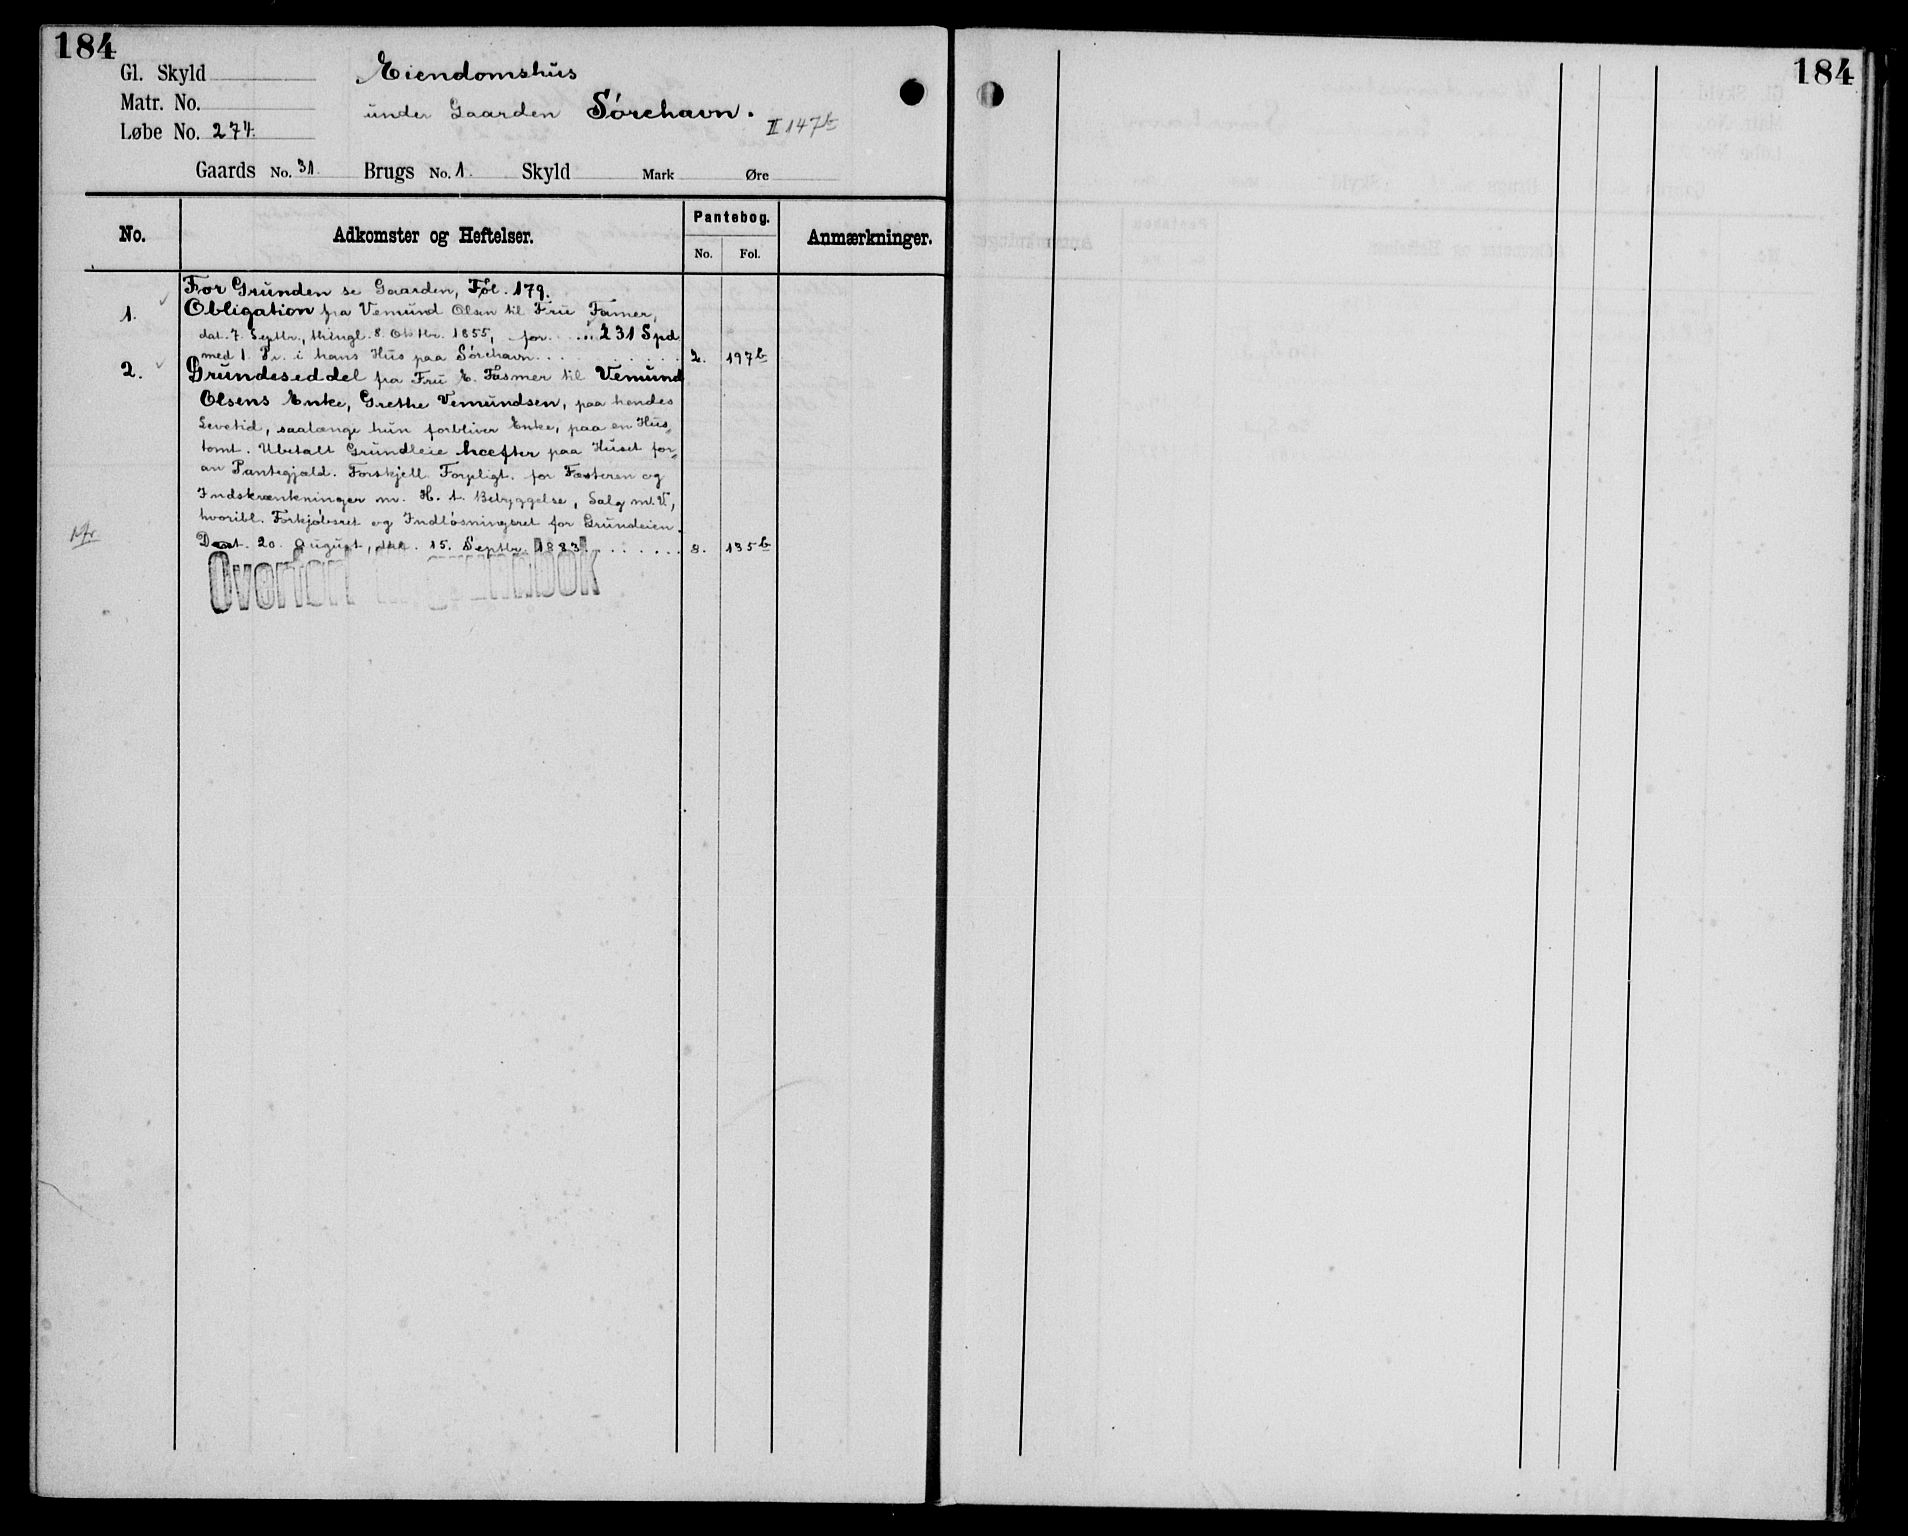 184
184
Gl. Skyld
Eiendomshus
Matr. No.
under Gaarden Sörehavn.
Løbe No. 274.
II 147b
Gaards No. 31. Brugs No. 1. Skyld Mark Øre
No. Adkomster og Heftelser. Pantebog. Anmærkninger.
No. Fol.
For Grunden se Gaarden, Fol. 179.
1. Obligation fra Vemund Olsen til Fru Fasmer,
dat. 7. Septbr., thingl. 8. Oktbr. 1855, for 231 Spd
med 1. Pr. i hans Hus paa Sörehavn 2. 197b
2. Grundeseddel fra Fru E. Fasmer til Vemund
Olsens Enke, Grethe Vemundsen, paa hendes
Levetid, saalænge hun forbliver Enke, paa en Hus=
tomt. Ubetalt Grundleie hæfter paa Huset for=
an Pantegjæld. Forskjell. Forpligt. for Fæsteren og
Indskrænkninger m. H. t. Bebyggelse, Salg m. V.,
hvoribl. Forkjöbsret og Indlösningsret for Grundeien.
Dat. 20. August, thl. 15. Septbr. 1883. 8. 135b
Overført til grunnbok